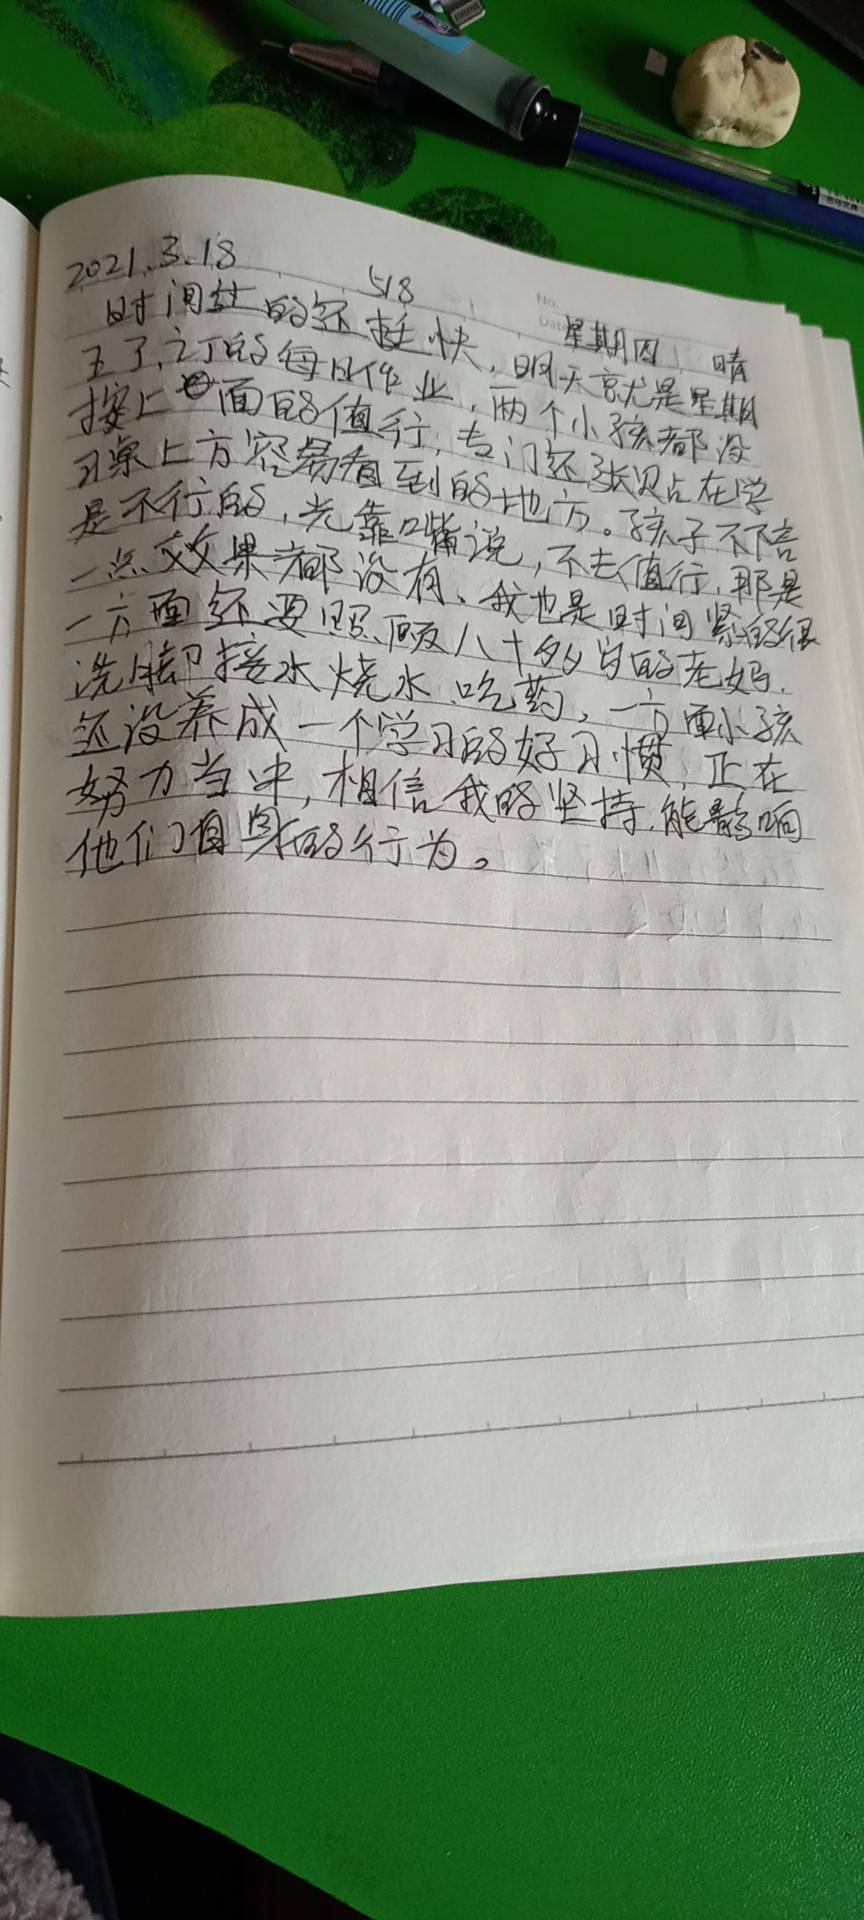 2021.3.18 518 星期四 晴
时间过的还挺快,明天就是星期
五了,订的每日作业,两个小孩都没
按上面的值行,专门还张贴在学
习桌上方容易看到的地方。孩子不陪
是不行的,光靠嘴说,不去值行,那是
一点效果都没有、我也是时间紧的很
一方面还要照顾八十多岁的老妈.
洗脚接水烧水.吃药,一方面小孩
还没养成一个学习的好习惯,正在
努力当中,相信我的坚持.能影响
他们自身的行为。
No.